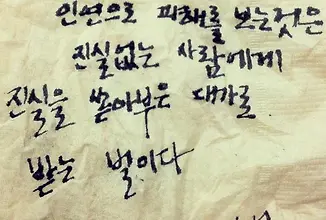 인연으로 피해를 보는것은
진실없는 사람에게
진실을 쏟아부은 대가로
받는 벌이다